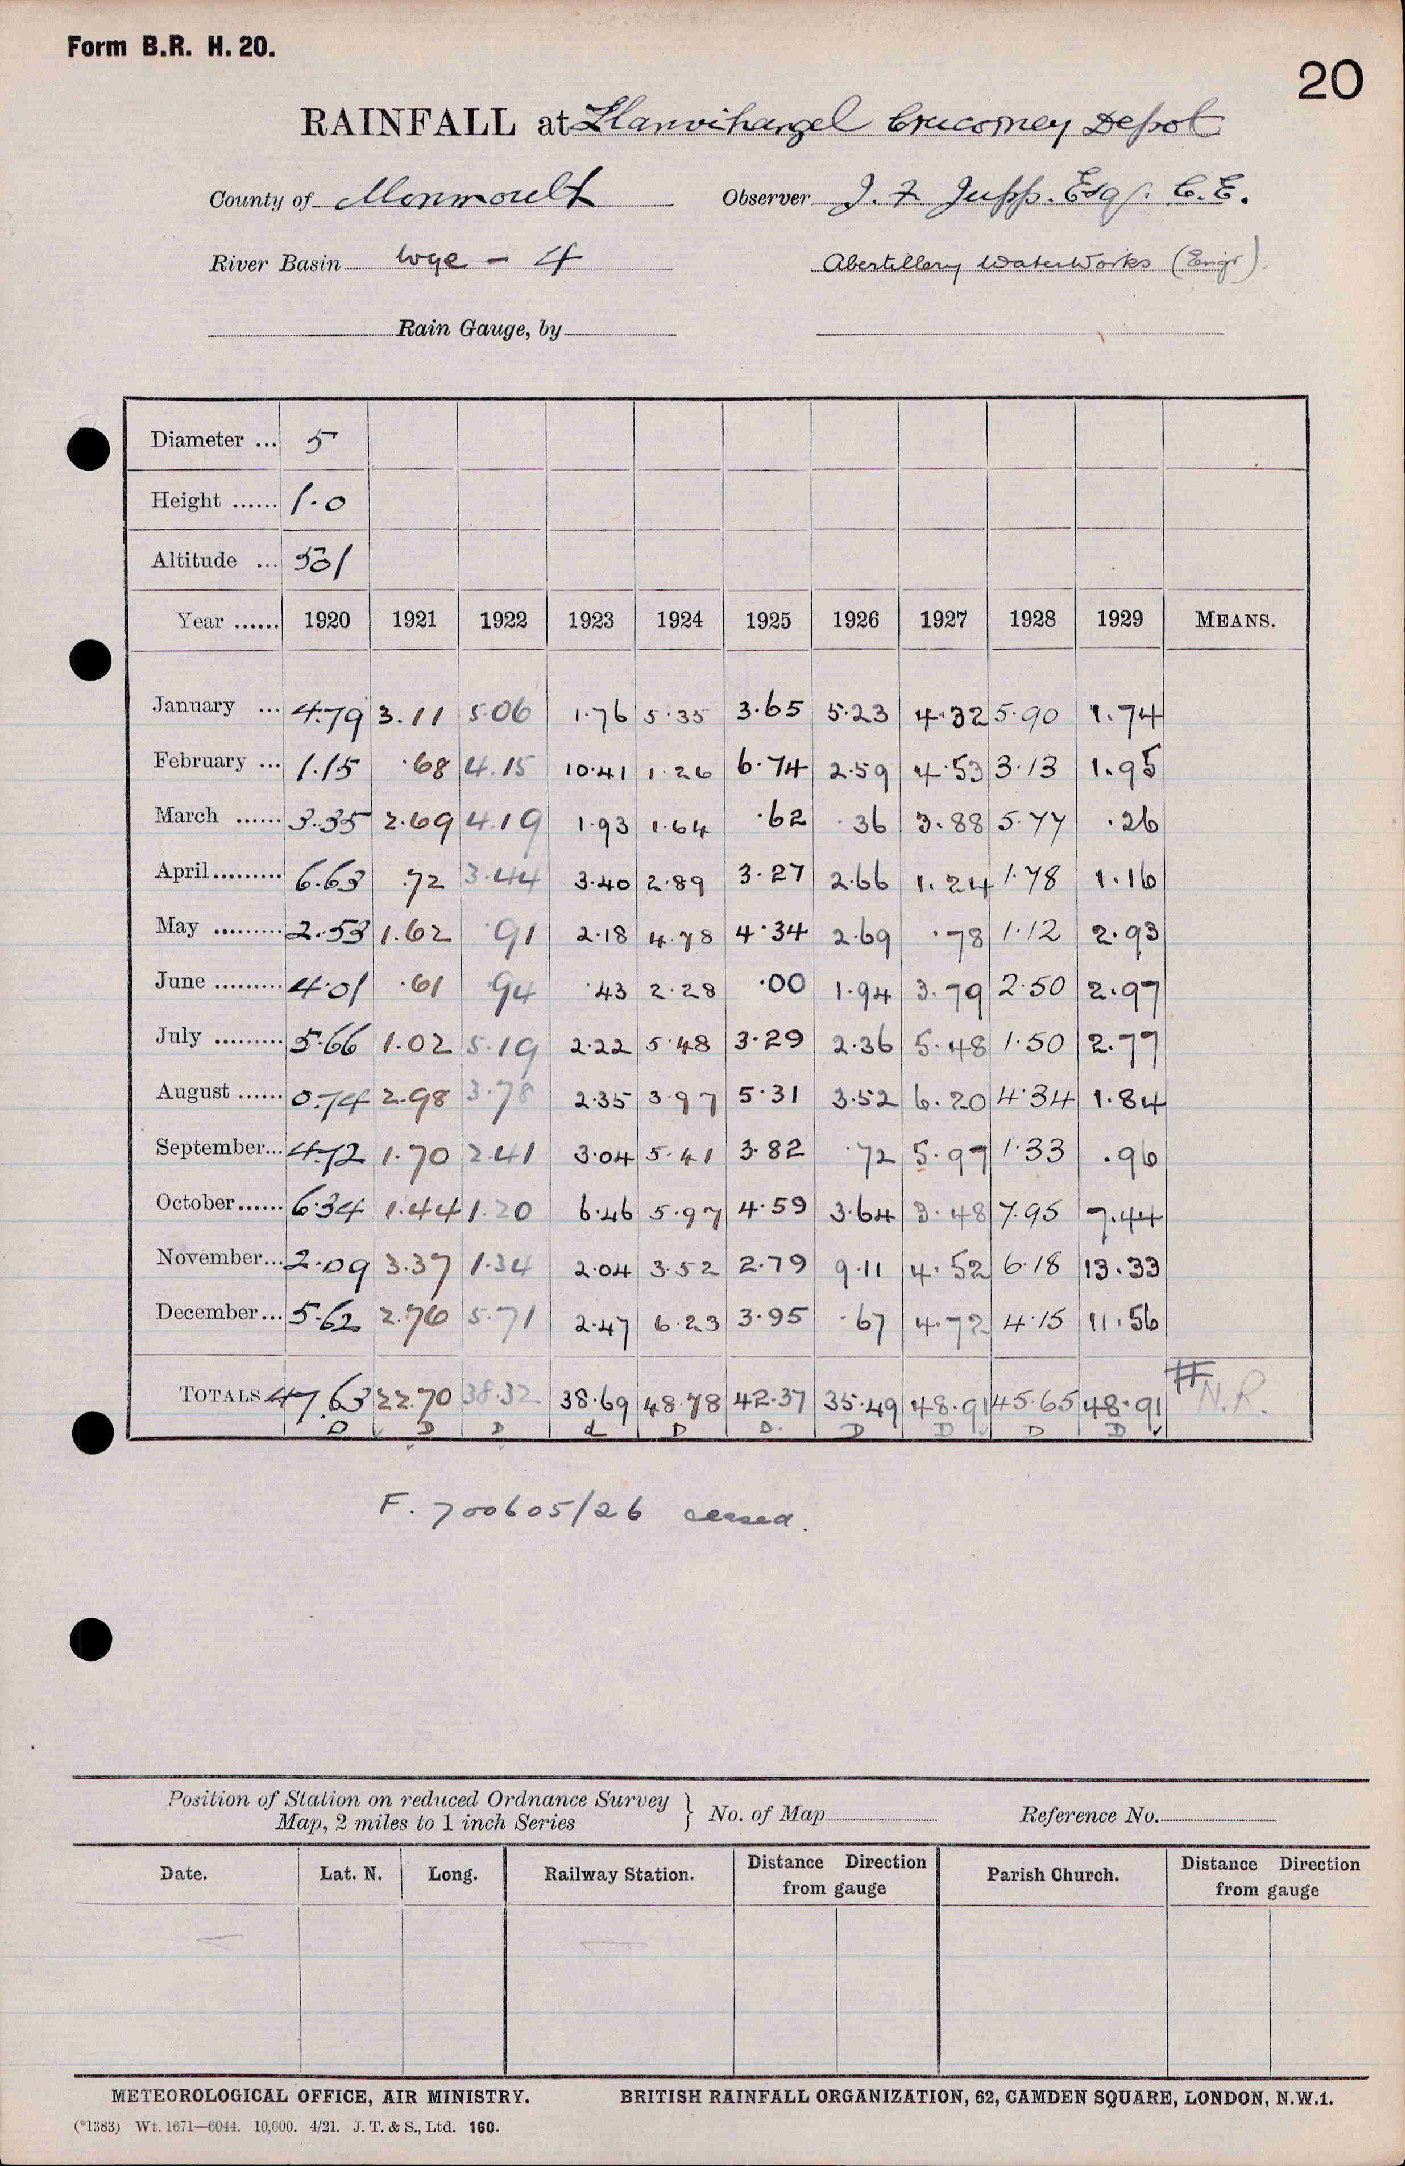 Form B.R. H. 20.
20
RAINFALL at Llanvihangel Crucorney Depot
County of Monmouth Observer J. F. Jupp. Esq. C.E.
River Basin Wye - 4 Abertillery WaterWorks (Engr).
Rain Gauge, by
Diameter ... 5
Height ...... 1.0
Altitude ... 501
Year ...... 1920 1921 1922 1923 1924 1925 1926 1927 1928 1929 MEANS.
January ... 4.79 3.11 5.06 1.76 5.35 3.65 5.23 4.32 5.90 1.74
February ... 1.15 .68 4.15 10.41 1.26 6.74 2.59 4.53 3.13 1.95
March ...... 3.35 2.69 4.19 1.93 1.64 .62 .36 3.88 5.77 .26
April......... 6.63 .72 3.44 3.40 2.89 3.27 2.66 1.24 1.78 1.16
May ......... 2.53 1.62 .91 2.18 4.78 4.34 2.69 .78 1.12 2.93
June ......... 4.01 .61 .94 .43 2.28 .00 1.94 3.79 2.50 2.97
July ......... 5.66 1.02 5.19 2.22 5.48 3.29 2.36 5.48 1.50 2.77
August ...... 0.74 2.98 3.78 2.35 3.97 5.31 3.52 6.20 4.34 1.84
September... 4.72 1.70 2.41 3.04 5.41 3.82 .72 5.97 1.33 .96
October...... 6.34 1.44 1.20 6.46 5.97 4.59 3.64 3.48 7.95 7.44
November... 2.09 3.37 1.34 2.04 3.52 2.79 9.11 4.52 6.18 13.33
December... 5.62 2.76 5.71 2.47 6.23 3.95 .67 4.72 4.15 11.56
TOTALS 47.63 22.70 38.32 38.69 48.78 42.37 35.49 48.91 45.65 48.91 N.R.
D D D d D D. D D D D
F. 700605/26 ceased.
Position of Station on reduced Ordnance Survey
Map, 2 miles to 1 inch Series } No. of Map Reference No.
Date. Lat. N. Long. Railway Station. Distance Direction from gauge Parish Church. Distance Direction from gauge
METEOROLOGICAL OFFICE, AIR MINISTRY. BRITISH RAINFALL ORGANIZATION, 62, CAMDEN SQUARE, LONDON, N.W.1.
(*1383) Wt. 1671—6044. 10,000. 4/21. J. T. & S., Ltd. 160.